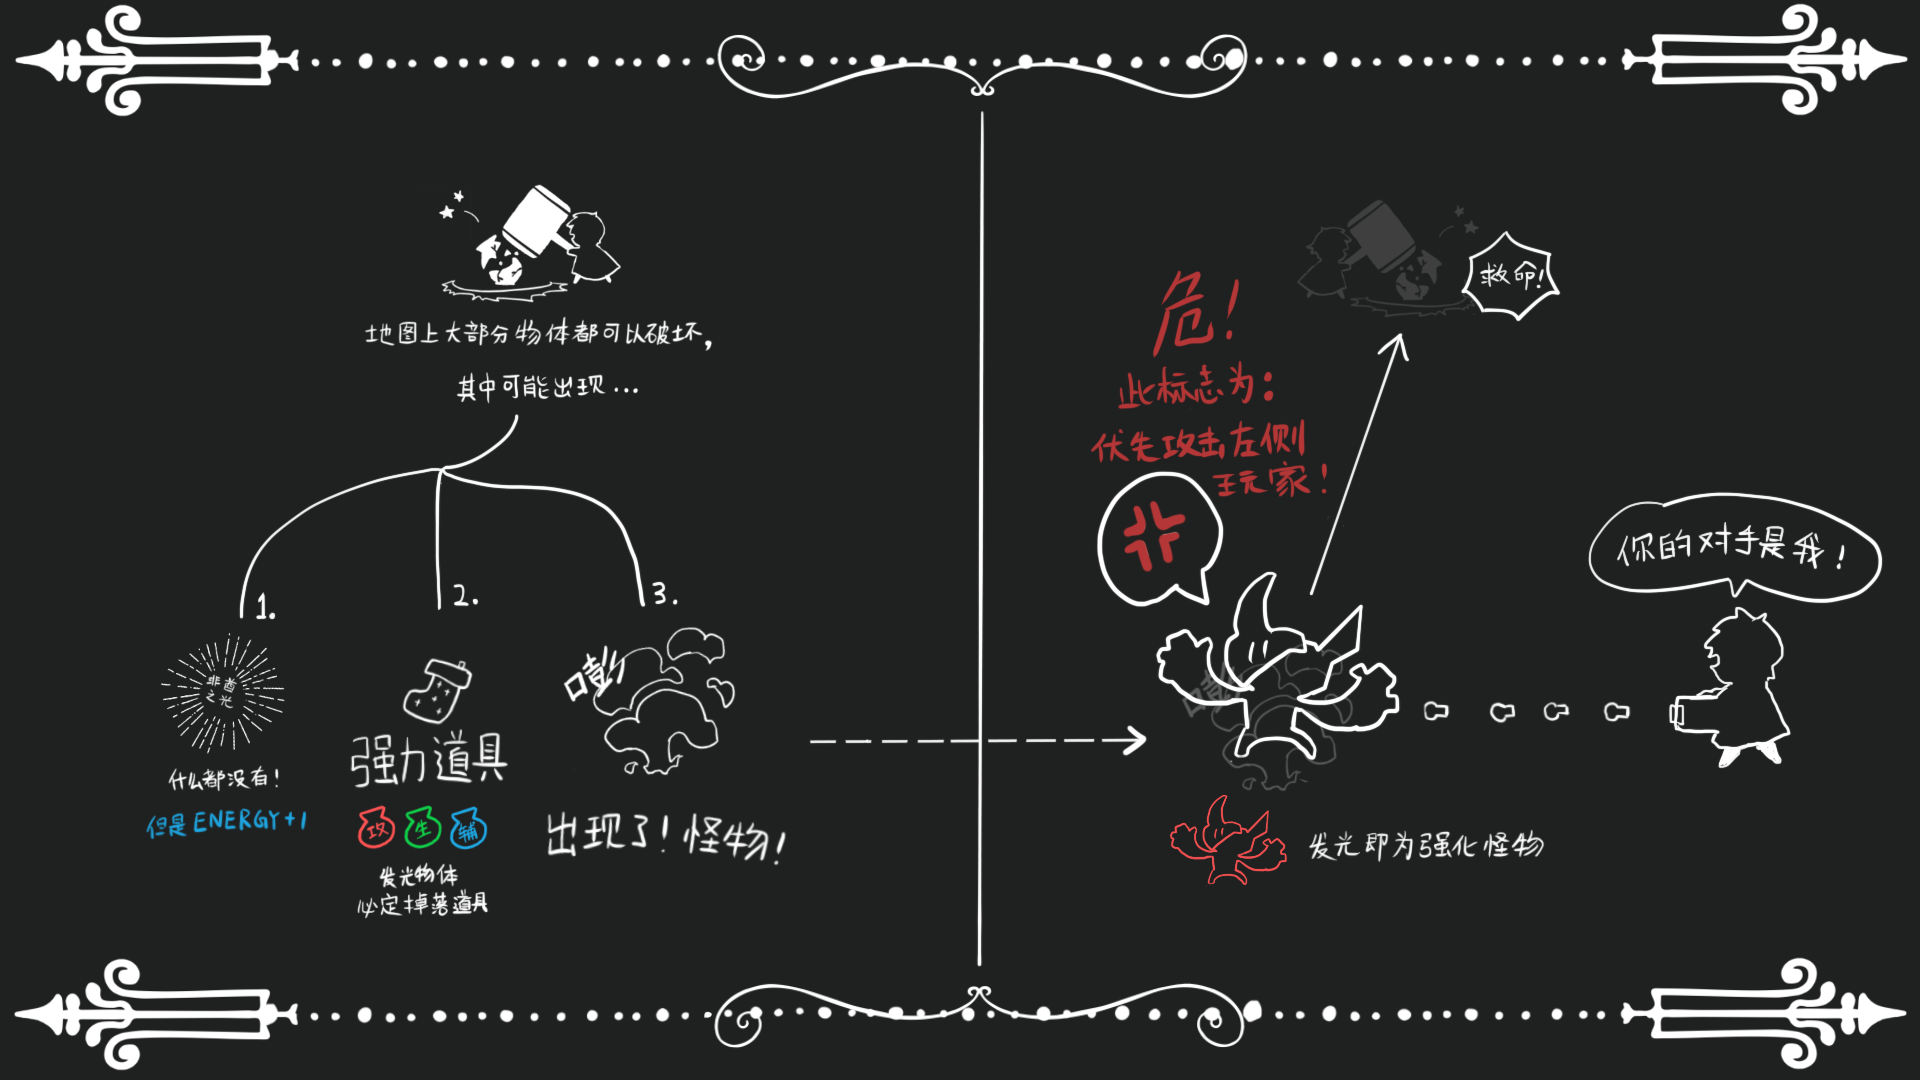 地图上大部分物体都可以破坏，
其中可能出现...
1.
2.
3.
非酋
之光
什么都没有！
但是ENERGY+1
强力道具
攻 生 辅
发光物体
必定掉落道具
嘭
出现了！怪物！
救命！
危！
此标志为：
优先攻击左侧
玩家！
你的对手是我！
嘭
发光即为强化怪物